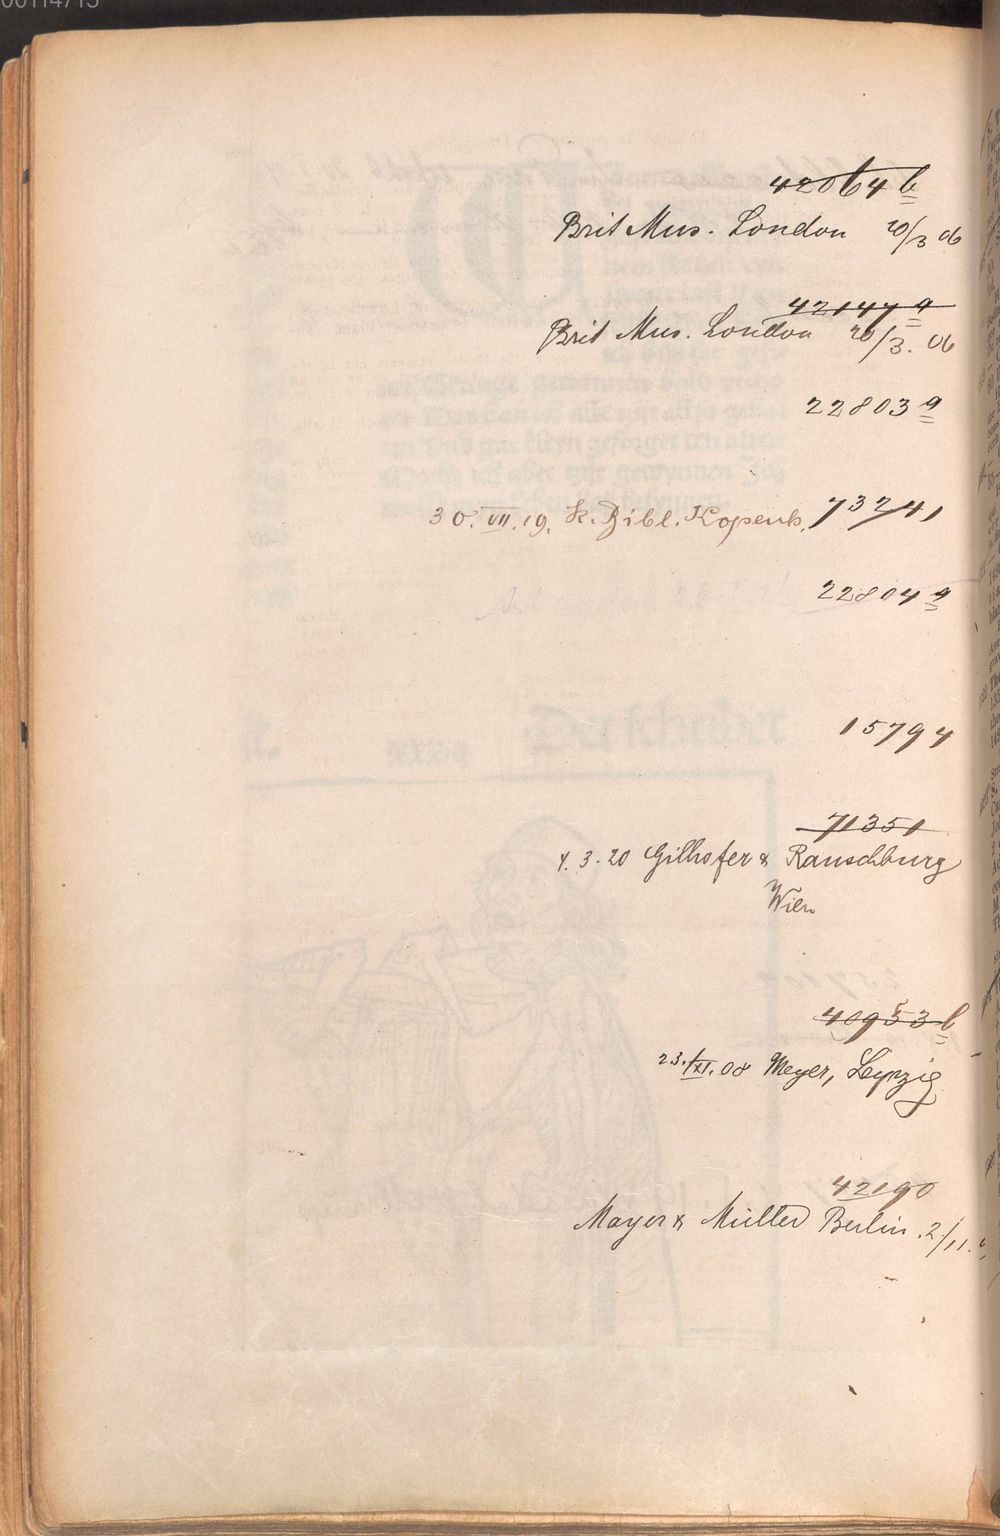 00114715
42064 b
Brit Mus. London 20/3 06
42147 a
Brit Mus. London 20/3. 06
22803 a
30. VII. 19. K. Bibl. Kopenh. 73241
22804 a
15794
71351
4. 3. 20 Gilhofer & Ranschburg
Wien
40953 b
23./XI. 08 Meyer, Leipzig
42190
Mayer & Müller Berlin. 2/11.